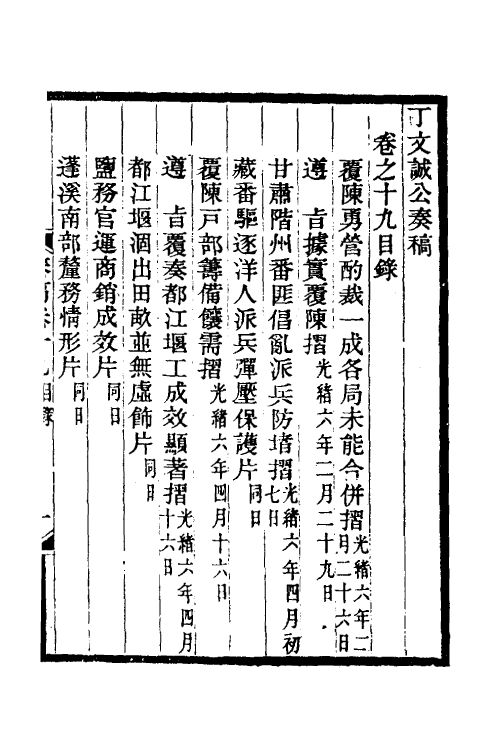 丁文誠公奏稿
卷之十九目錄
覆陳勇營酌裁一成各局未能合併摺光緒六年二月二十六日
遵　旨據實覆陳摺光緒六年二月二十九日
甘肅階州番匪倡亂派兵防堵摺光緒六年四月初七日
藏番驅逐洋人派兵彈壓保護片同日
覆陳戶部籌備饟需摺光緒六年四月十六日
遵　旨覆奏都江堰工成效顯著摺光緒六年四月十六日
都江堰涸出田畝並無虛飾片同日
鹽務官運商銷成效片同日
蓬溪南部釐務情形片同日
奏稿卷十九目錄　一